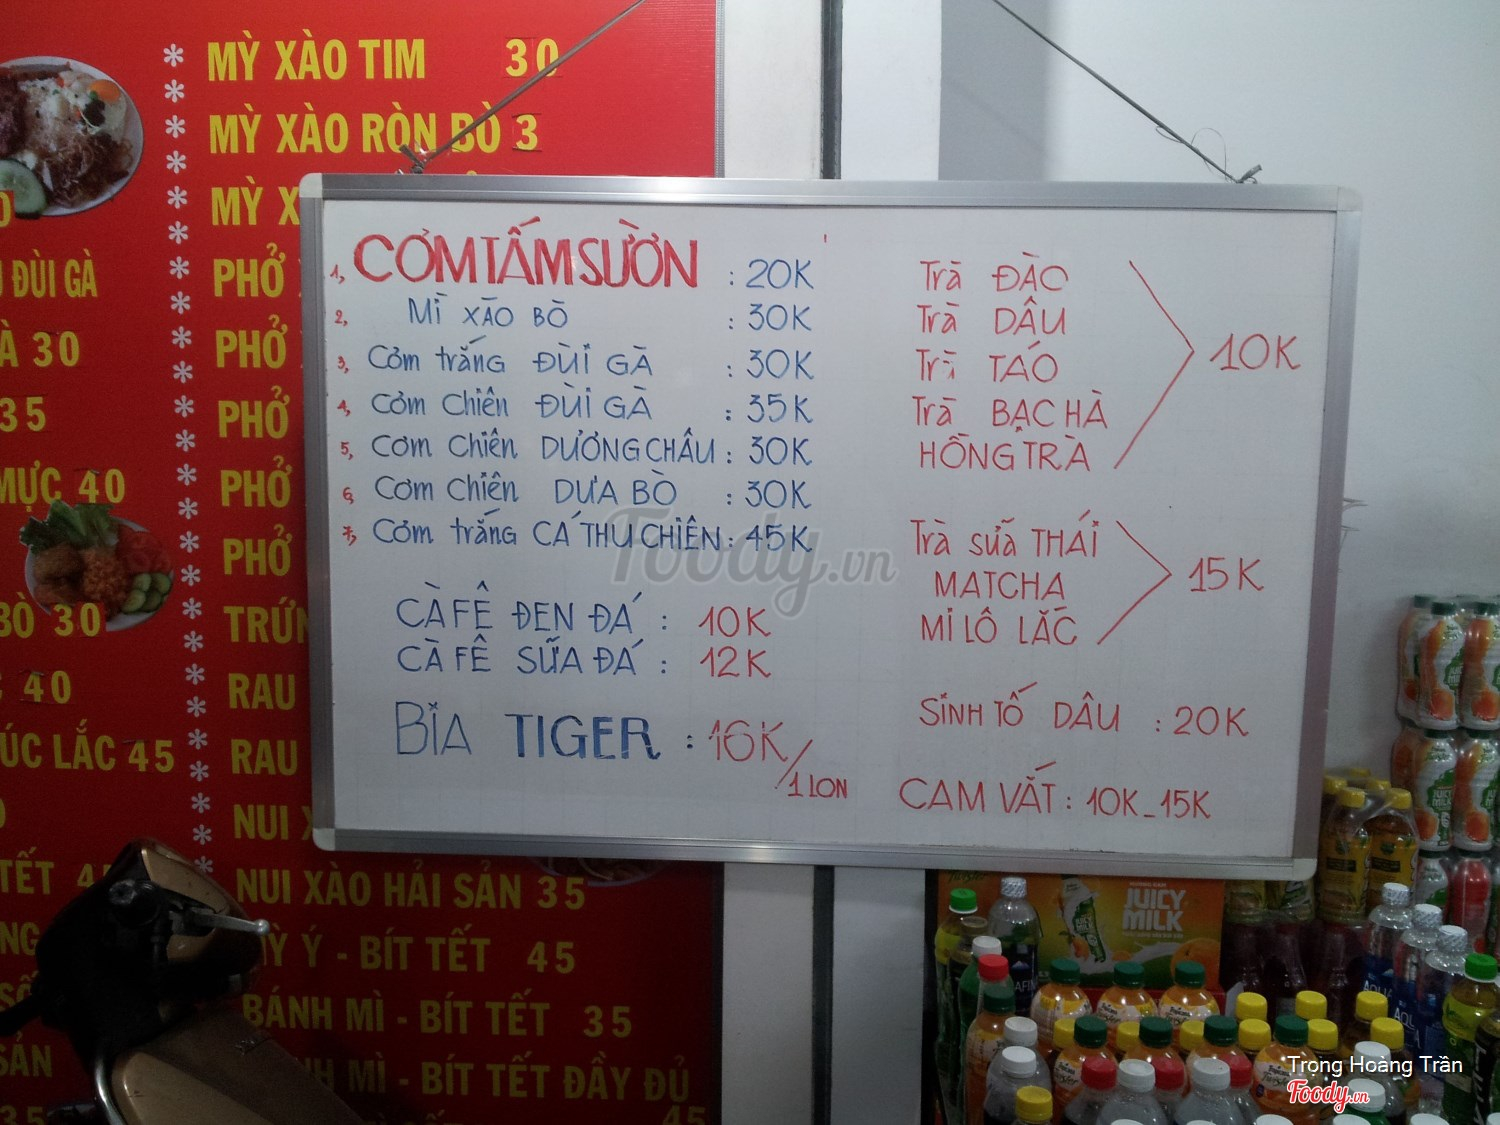 MỲ XÀO TIM 30
MỲ XÀO RÒN BÒ 3
MỲ X
PHỞ
PHỞ
PHỞ
PHỞ
PHỞ
TRỨN
RAU
RAU
NUI X
NUI XÀO HẢI SẢN 35
MỲ Ý - BÍT TẾT 45
BÁNH MÌ - BÍT TẾT 35
NH MÌ - BÍT TẾT ĐẦY ĐỦ
45
ĐÙI GÀ
À 30
35
MỰC 40
BÒ 30
40
ÚC LẮC 45
TẾT 4
NG
SỐ
SẢN
35
1, CƠM TẤM SƯỜN : 20K
2, MÌ XÀO BÒ : 30K
3, Cơm trắng ĐÙI GÀ : 30K
4, Cơm Chiên ĐÙI GÀ : 35K
5, Cơm Chiên DƯƠNG CHÂU : 30K
6, Cơm Chiên DƯA BÒ : 30K
7, Cơm trắng CÁ THU CHIÊN : 45K
CÀ FÊ ĐEN ĐÁ : 10K
CÀ FÊ SỮA ĐÁ : 12K
BIA TIGER : 16K/1 LON
Trà ĐÀO
Trà DÂU
Trà TÁO
Trà BẠC HÀ
HỒNG TRÀ
10K
Trà sữa THÁI
MATCHA
MI LÔ LẮC
15K
SINH TỐ DÂU : 20K
CAM VẮT : 10K_15K
Foody.vn
JUICY
MILK
Trọng Hoàng Trần
Foody.vn